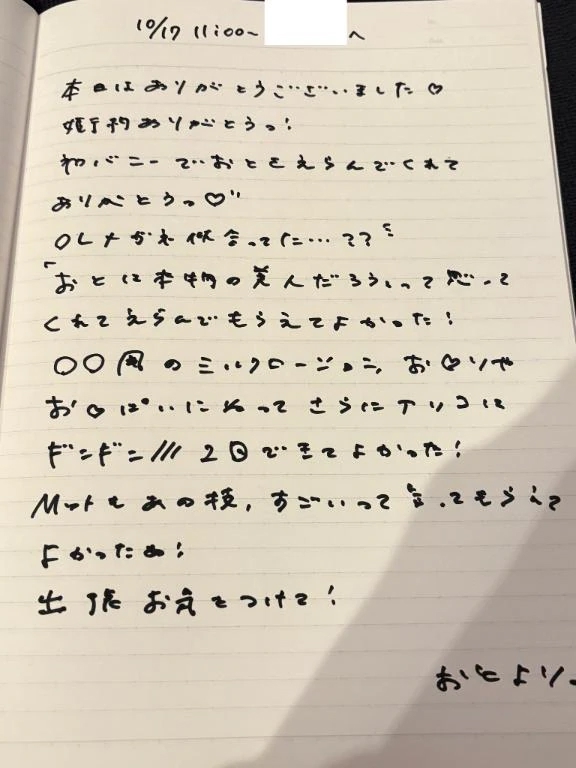 10/17 11:00~ へ
本日はありがとうございました♡
予約ありがとうっ!
初バニーでおとをえらんでくれて
ありがとうっ♡"
OLナがお 似合ってた…??
「おとは本物の美人だろう」って思って
くれてえらんでもらえてよかった!
〇〇風のミルクローション、お♡りや
お♡ぱいにぬってさらにアソコは
ギンギン/// 2回できてよかった!
Mットもあの技、すごいって言ってもらえて
よかったぁ!
出張お気をつけて!
おとより。